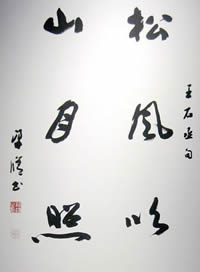 王右丞句
松風吹
山月照
梁 书